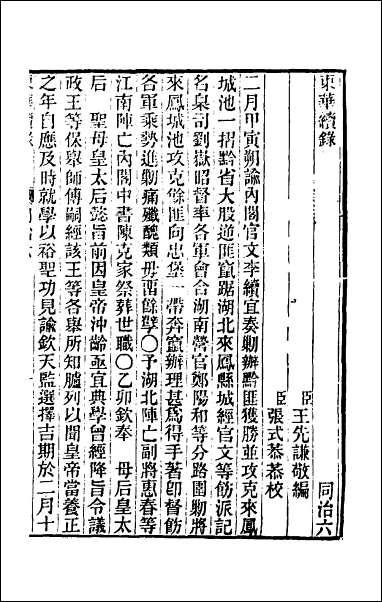 東華續錄
同治六
臣王先謙敬編
臣張式恭恭校
二月甲寅朔諭內閣官文李續宜奏剿辦黔匪獲勝並攻克來鳳
城池一摺黔省大股逆匪竄踞湖北來鳳縣城經官文等飭派記
名臬司劉嶽昭督率各軍會合湖南營官鄭陽和等分路圍剿將
來鳳城池攻克餘匪向忠堡一帶奔竄辦理甚為得手著卽督飭
各軍乘勢進剿痛殲醜類毋留餘孽○予湖北陣亡副將惠春等
江南陣亡內閣中書陳克家祭葬世職○乙卯欽奉　母后皇太
后　聖母皇太后懿旨前因皇帝沖齡亟宜典學曾經降旨令議
政王等保舉師傅嗣經該王等各舉所知臚列以聞皇帝當養正
之年自應及時就學以裕聖功見諭欽天監選擇吉期於二月十